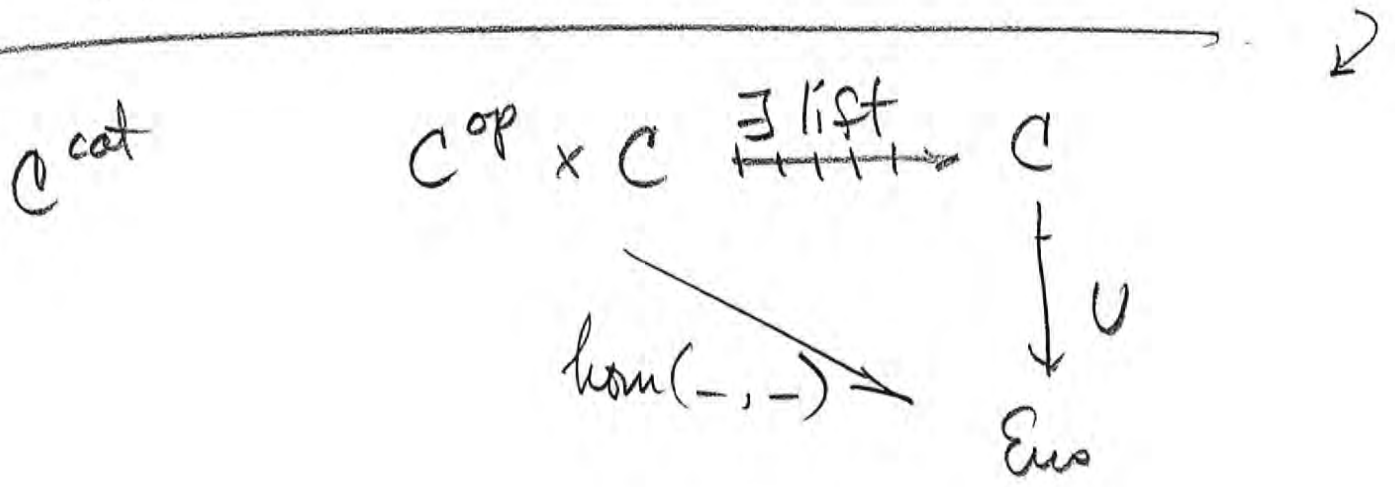 C^cat C^op × C ∃ lift C
U
hom(−, −)
Ens